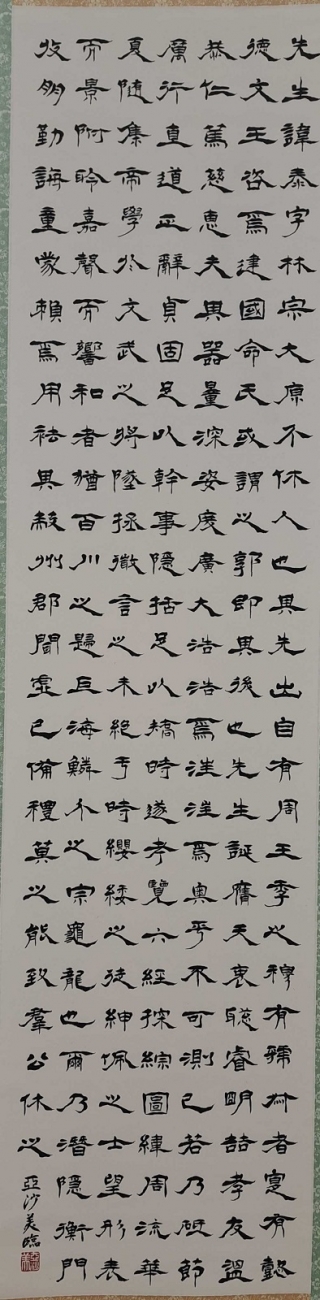 先生諱泰字林宗大原介休人也其先出自有周王季之穆有虢叔者寔有懿
德文王咨焉建國命氏或謂之郭即其後也先生誕膺天衷聰睿明喆孝友溫
恭仁篤慈惠夫其器量深姿度廣大浩浩焉汪汪焉奧乎不可測已若乃砥節
厲行直道正辭貞固足以幹事隱括足以矯時遂考覽六經探綜圖緯周流華
夏隨集帝學於文武之將墜拯微言之未絕于時纓緌之徒紳佩之士望形表
而景附聆嘉聲而響和者猶百川之歸巨海鱗介之宗龜龍也爾乃潛隱衡門
收朋勤誨童蒙賴焉用祛其蔽州郡聞虛己備禮莫之能致羣公休之
亞沙美臨